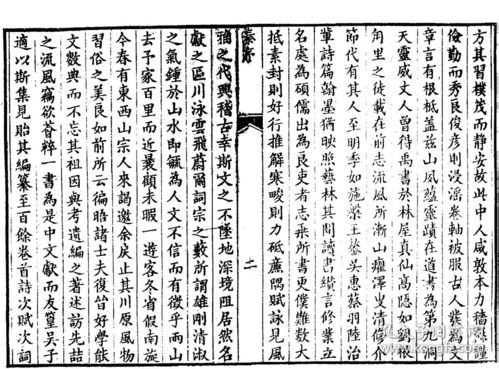 方其習樸茂而靜安故中人咸敦本力穡勤謹
儉勤而秀良俊彥則浸淫卷軸被服古人蓋為文
章言有根柢蓋茲山風蘊靈蹟在道書為第九洞
天靈威丈人曾得禹書於林屋真仙高隱如劉根
角里之徒載在前志流風所漸山癯澤叟清修介
節代有其人至明季如施槃王鏊吳惠蔡羽陸治
輩詩篇翰墨猶映照藝林其間讀書績言修業立
名處為碩儒出為良吏者志乘所書更僕難數大
抵素封則好行推解寒畯則力砥廉隅賦詠見風
序
二
雅之代興稽古幸斯文之不墜地深境阻居然名
獻之區川泳雲飛蔚爾詞宗之藪所謂雄剛清淑
之氣鍾於山水即毓為人文不信而有徵乎山中
去予家百里而近曩顧未暇一遊客冬省假南旋
今春有東西山宗人來謁邀余戾止其川原風物
習俗之美良如前所云徧晤諸士夫復皆好學能
文數典而不忘其祖因與考遺編之著述訪先喆
之流風竊欲薈粹一書為是中文獻而友篁吳子
適以斯集見貽其編纂至百餘卷首詩次賦次詞